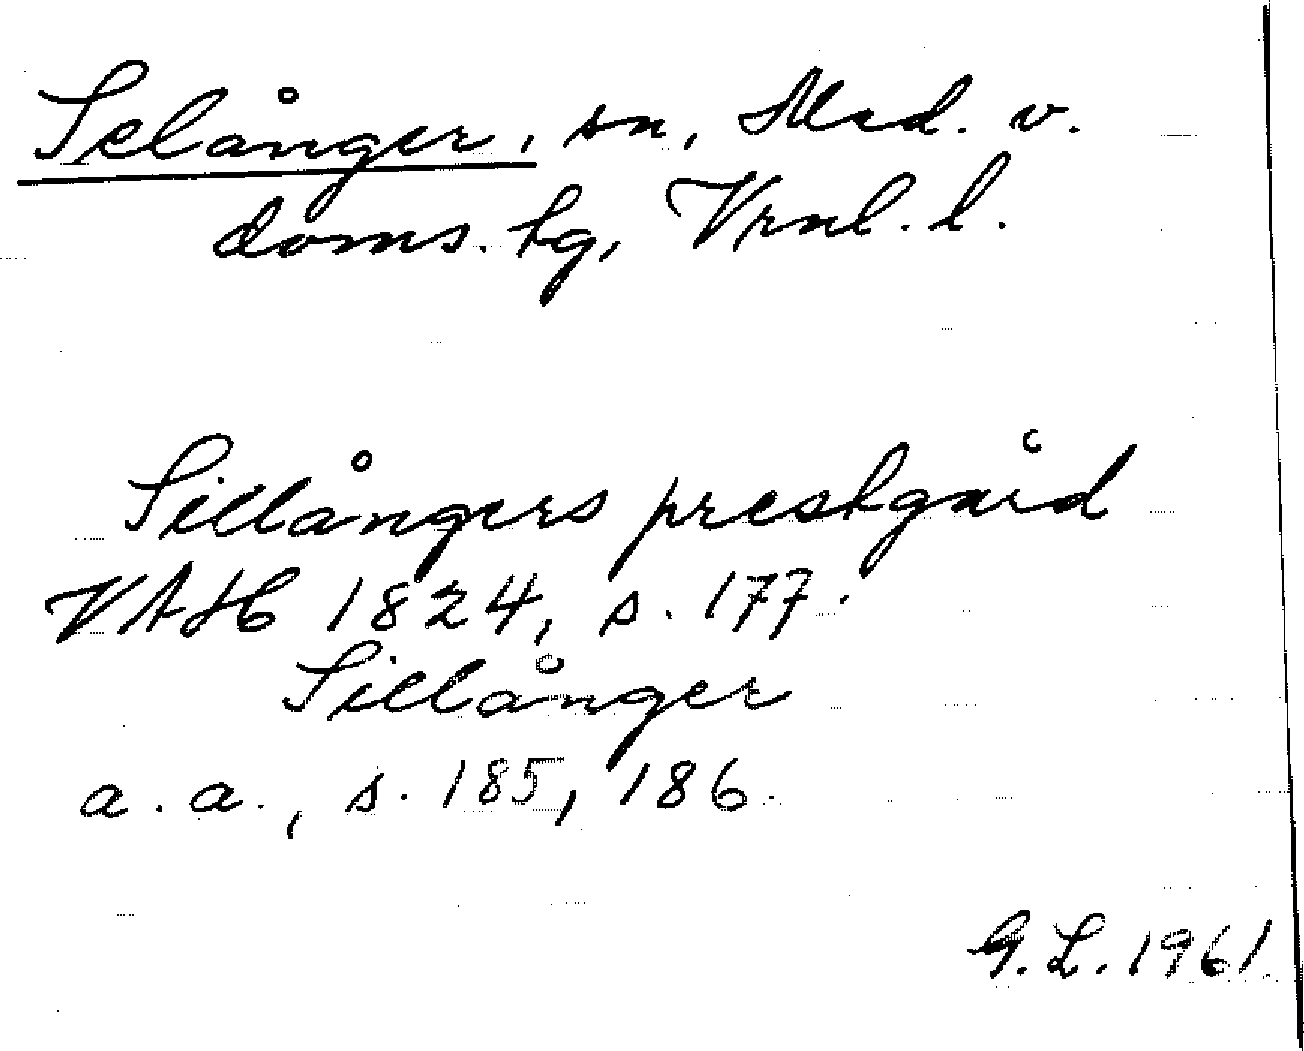 Selånger, sn, Med. v.
doms. tg, Vrnl. l.
Sillångers prestgård
VAH 1824, s. 177.
Sillånger
a. a., s. 185, 186.
G. L. 1961.